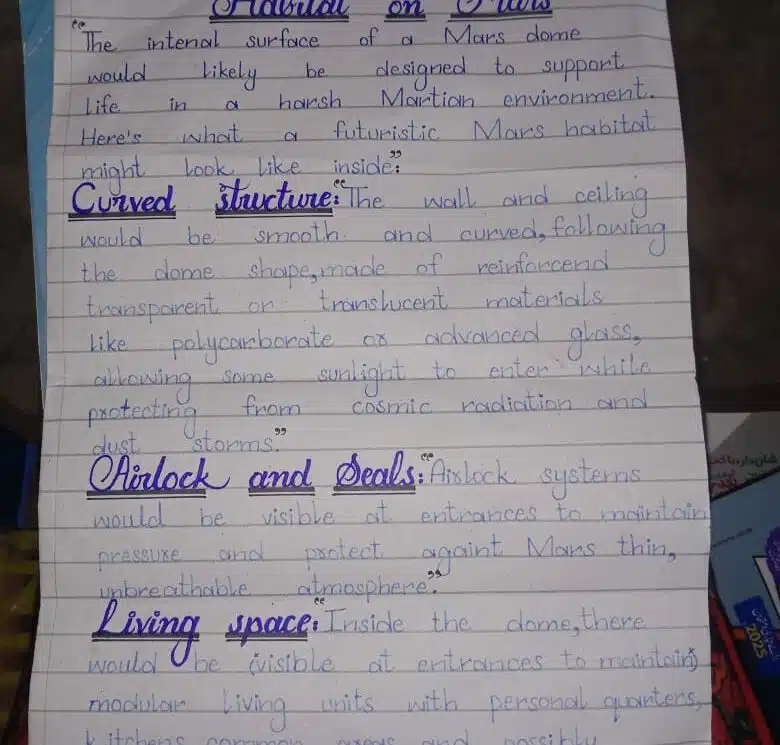 Habitat on Mars
"The intenal surface of a Mars dome
would likely be designed to support
life in a harsh Martian environment.
Here's what a futuristic Mars habitat
might look like inside":
Curved structure: "The wall and ceiling
would be smooth and curved, following
the dome shape, made of reinforcend
transparent or translucent materials
like polycarborate or advanced glass,
allowing some sunlight to enter while
protecting from cosmic radiation and
dust storms."
Airlock and Seals: "Airlock systems
would be visible at entrances to maintain
pressure and protect againt Mars thin,
unbreathable atmosphere."
Living space: "Inside the dome, there
would be (visible at entrances to maintain)
modular living units with personal quarters,
kitchens common areas and possibly
2025